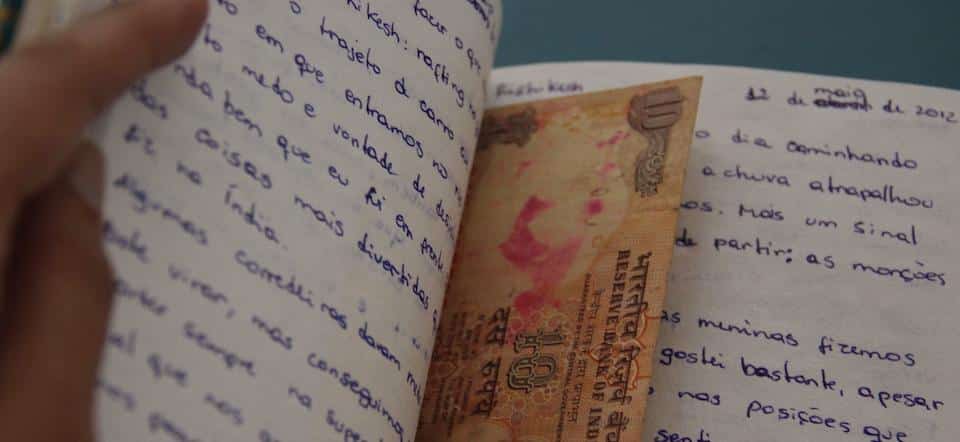 tocar o que
hikesh: rafting
o trajeto de carro
em que entramos no
to medo e vontade de
nda bem que eu fui em frente
das coisas mais divertidas
fiz na Índia.
Algumas corredeiras davam
virar, mas conseguimos
sempre na
que nos
10
भारतीय रिज़र्व
RESERVE BANK OF IND
दस रुपये
10
Rishikesh
12 de maio de 2012
o dia caminhando
a chuva atrapalhou
os. Mais um sinal
de partir: as monções
as meninas fizemos
gostei bastante, apesar
nas posições que
senti